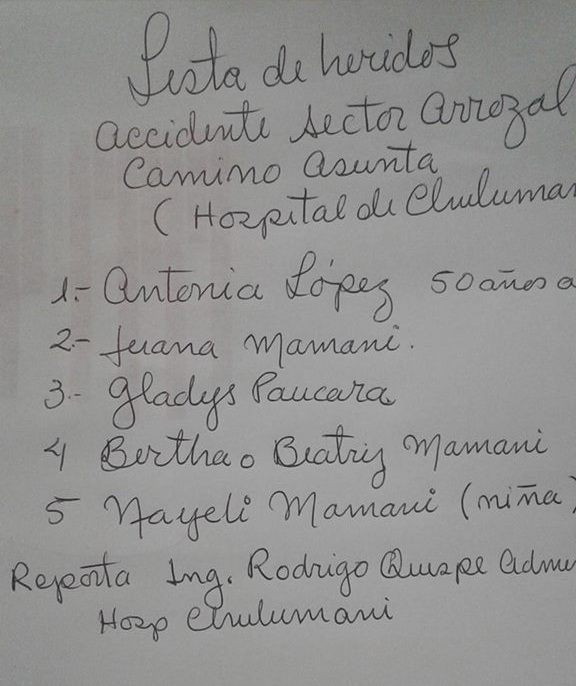 Lista de heridos
accidente sector Arrozal
Camino Asunta
( Hospital de Chuluman
1.- Antonia López 50 años a
2.- Juana Mamani.
3.- Gladys Paucara
4 Bertha o Beatriz Mamani
5 Nayeli Mamani (niña)
Reporta Ing. Rodrigo Quispe Adm
Hosp Chulumani